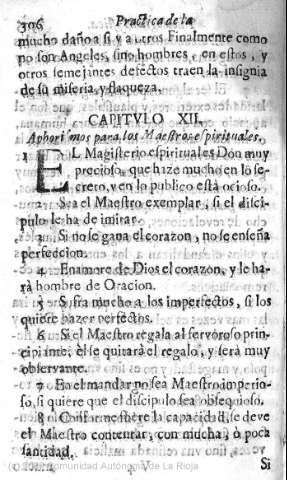 306 Practica de la
mucho daño a si y a otros Finalmente como
no son Angeles, sino hombres, en estos, y
otros semejantes defectos traen la insignia
de su miseria, y flaqueza.
CAPITVLO XII.
Aphorismos para los Maestros espirituales.
1 EL Magisterio espiritual es Don muy
precioso, que haze mucho en lo se-
creto, y en lo publico está ocioso.
2 Sea el Maestro exemplar, si el disci-
pulo le ha de imitar.
3 Si no se gana el corazon, no se enseña
perfeccion.
4 Enamore de Dios el corazon, y le ha-
rá hombre de Oracion.
5 Sufra mucho a los imperfectos, si los
quiere hazer perfectos.
6 Si el Maestro regala al fervoroso prin-
cipiante, èl se quitará el regalo, y será muy
observante.
7 En el mandar no sea Maestro imperio-
so, si quiere que el discipulo sea obsequioso.
8 Conforme fuere la capacidad, se deve
el Maestro contentar, con mucha, ò poca
santidad.
Si
Comunidad Autónoma de La Rioja